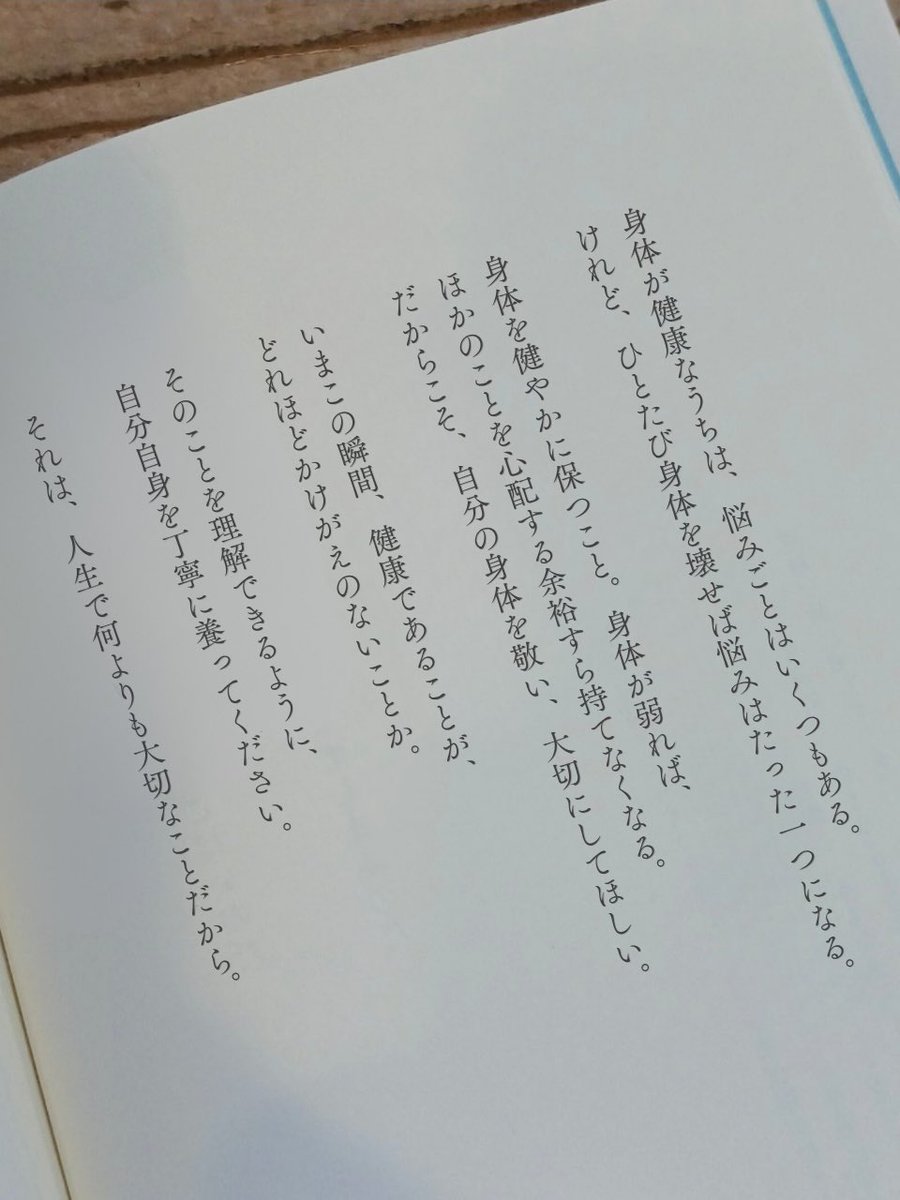 身体が健康なうちは、悩みごとはいくつもある。
けれど、ひとたび身体を壊せば悩みはたった一つになる。
身体を健やかに保つこと。身体が弱れば、
ほかのことを心配する余裕すら持てなくなる。
だからこそ、自分の身体を敬い、大切にしてほしい。
いまこの瞬間、健康であることが、
どれほどかけがえのないことか。
そのことを理解できるように、
自分自身を丁寧に養ってください。
それは、人生で何よりも大切なことだから。